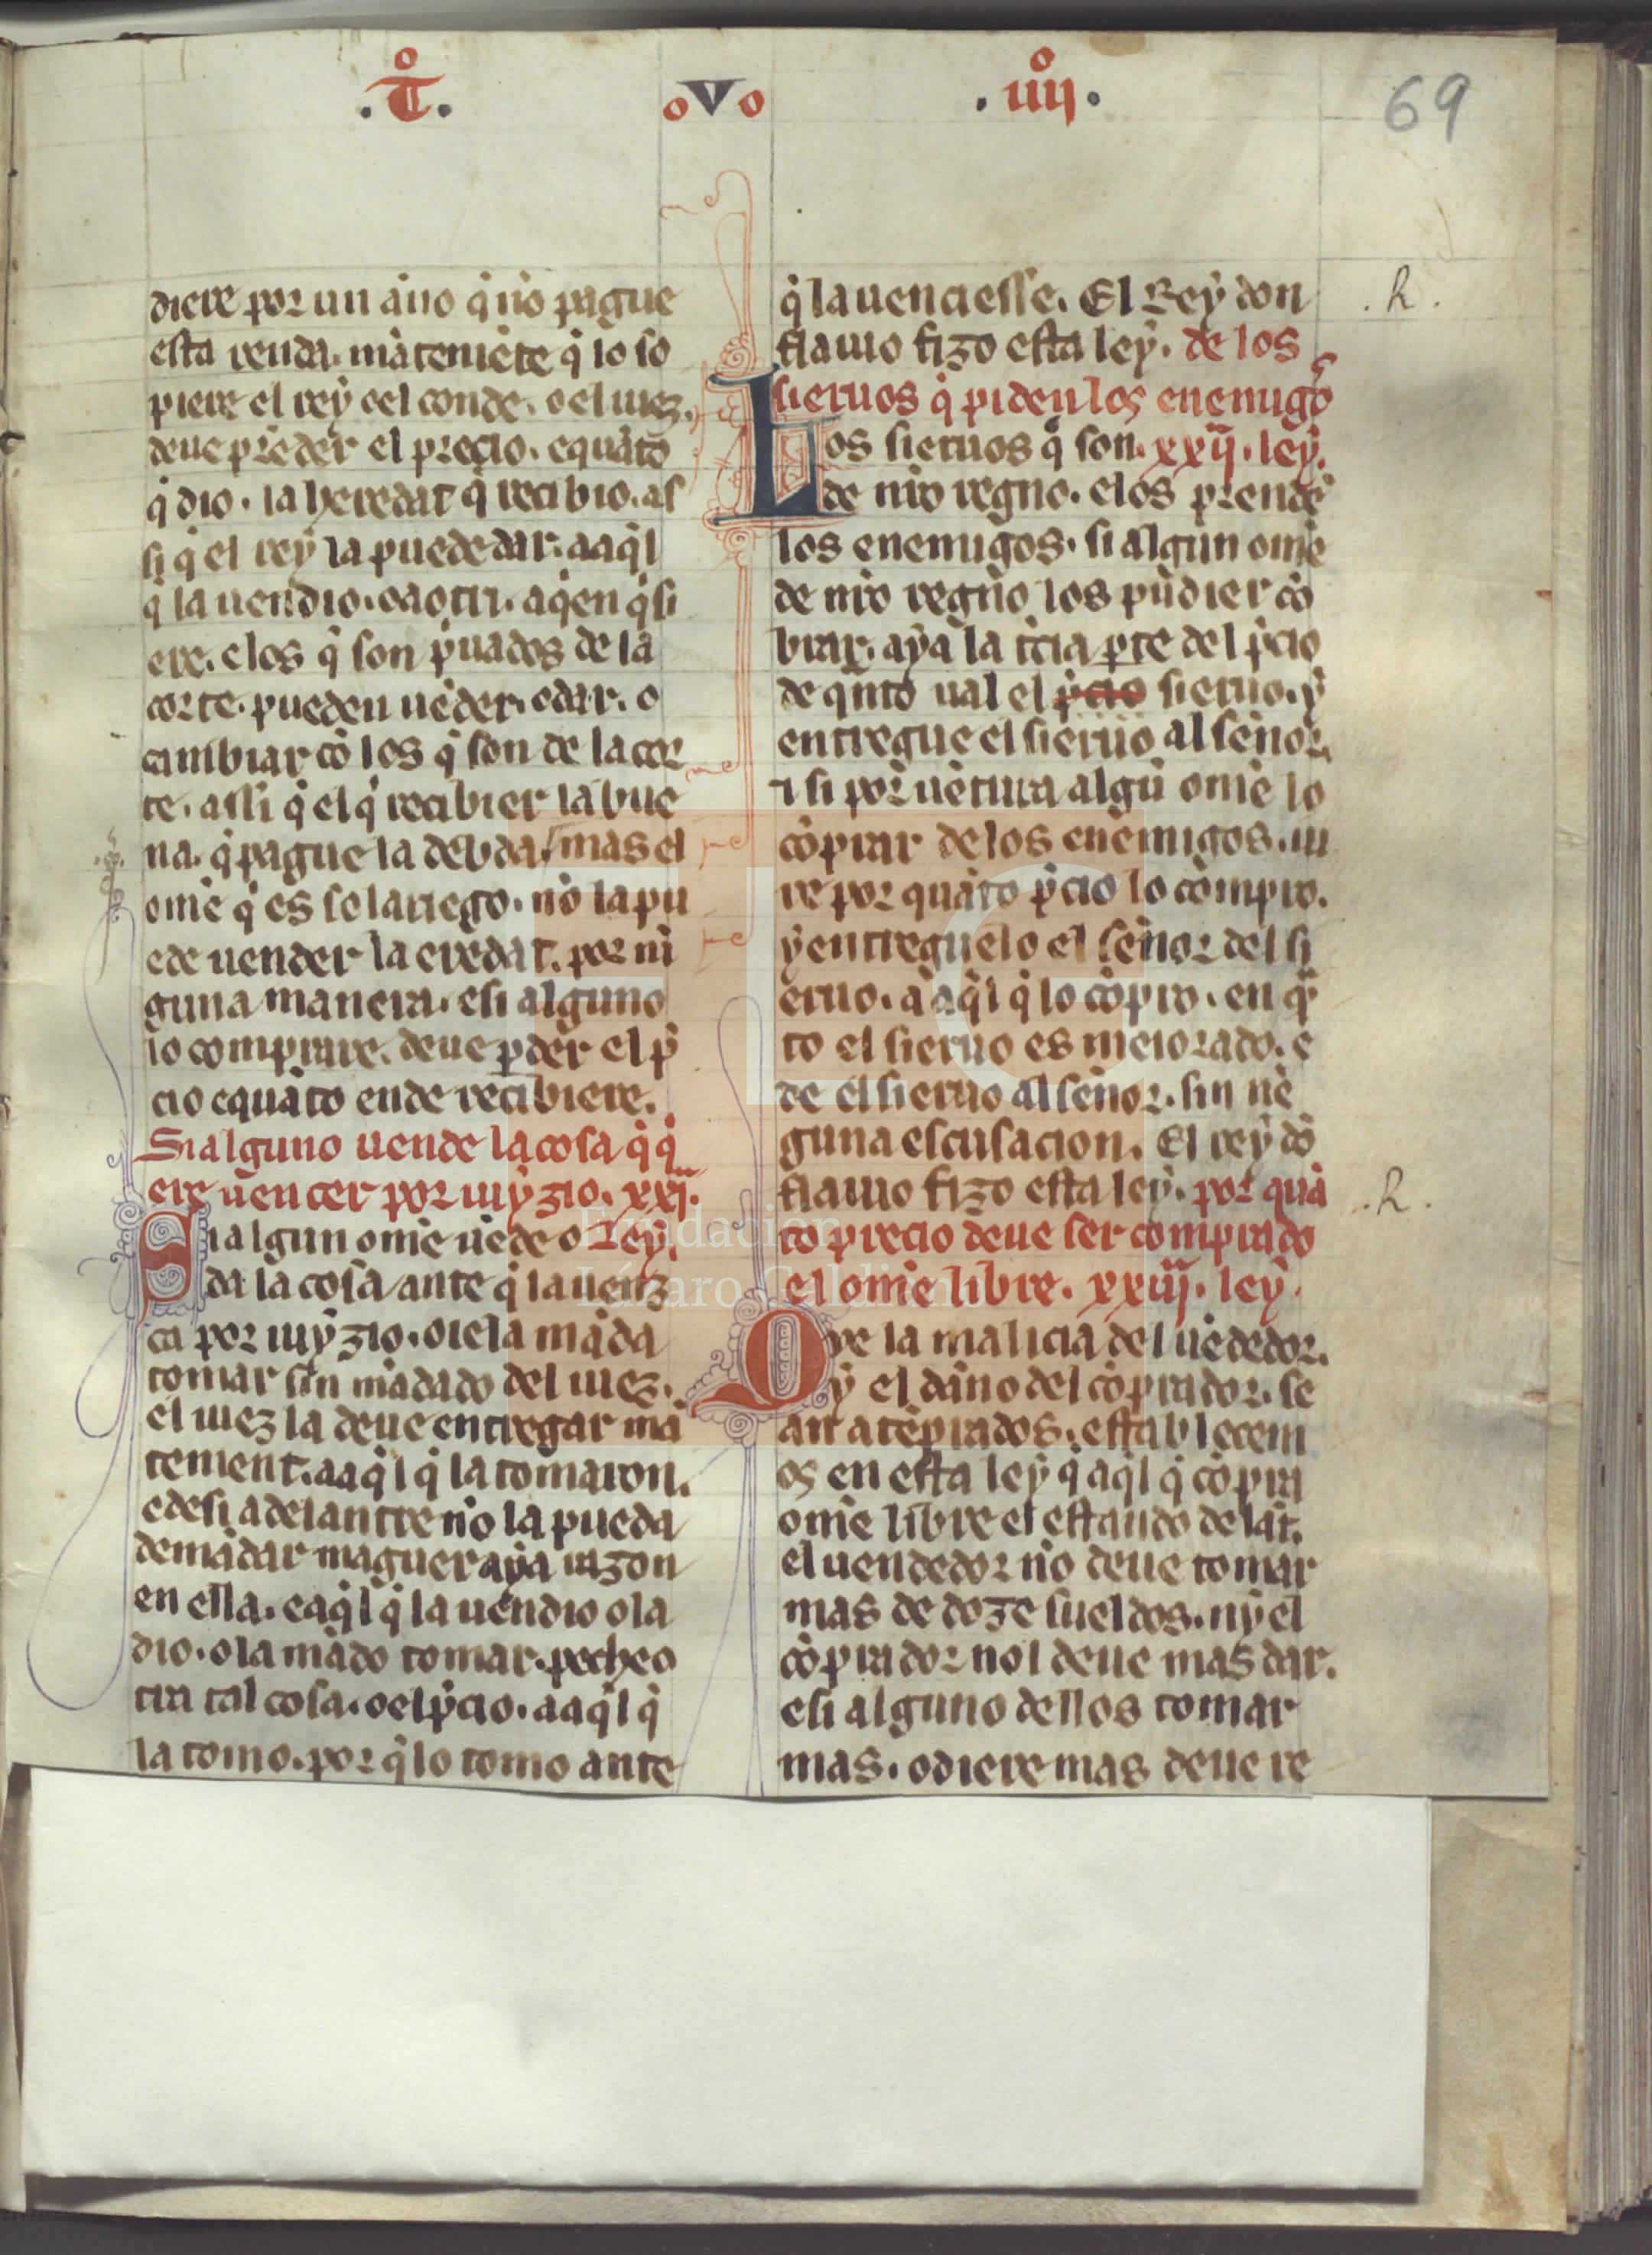 .T̊. oVo .iiij̊. 69
diere por un año q̇ no pague
esta renda. mãteniẽte q̇ lo so
piere el rey o el conde. o el iuez.
deue p̃eder el precio. equãto
q̇ dio. la heredat q̇ recibio. as
si q̇ el rey la puede dar. aaq̇l
q̇ la uendio. o a otri. a q̇en q̇si
ere. e los q̇ son ṗuados de la
corte. pueden uẽder. e dar. o
cambiar cõ los q̇ son de la cor
te. assi q̇ el q̇ recibier la bue
na. q̇ pague la debda. mas el
om̃e q̇ es solariego. nõ la pu
ede uender la eredat. por nĩ
guna manera. e si alguno
lo comprare. deue ꝑder el ṗ
cio e quãto ende recibiere.
Si alguno uende la cosa q̇ q̇
ere uencer por iuyzio. xxi.
Si algun om̃e uẽde o Ley.
da la cosa ante q̇ la uenz
ca por iuyzio. o ie la mãda
tomar sin mãdado del iuez.
el iuez la deue entregar mã
tenient. aaq̇l q̇ la tomaron.
e desi adelantre nõ la pueda
demãdar maguer aya razon
en ella. e aq̇l q̇ la uendio o la
dio. o la mãdo tomar. peche o
tra tal cosa. o el ṗcio. aaq̇l q̇
la tomo. por q̇ lo tomo ante
q̇ la uenciesse. El Rey don .R.
flauio fizo esta ley. de los
sieruos q̇ piden los enemigos
Los sieruos q̇ son. xxij. ley.
de nr̃o regno. e los prendẽ
los enemigos. si algun om̃e
de nr̃o regno los pudier cõ
brar. aya la t̃cia ꝑte del ṗcio
de q̃nto ual el ṗcio sieruo. y
entregue el sieruo al señor.
⁊ si por uẽtura algũ om̃e lo
cõprar de los enemigos. iu
re por quãto ṗcio lo cõpro.
y entreguelo el señor del si
eruo. a aq̇l q̇ lo cõpro. en q̃
to el sieruo es meiorado. e
de el sieruo al señor. sin nẽ
guna escusacion. El rey dõ
flauio fizo esta ley. por quã .R.
to precio deue ser comprado
el om̃e libre. xxiij. ley.
Que la malicia del uẽdedor.
y el daño del cõprador. se
an atẽprados. establecem
os en esta ley q̇ aq̇l q̇ cõpra
om̃e libre el estando delãt.
el uendedor nõ deue tomar
mas de doze sueldos. ny el
cõprador nol deue mas dar.
e si alguno dellos tomar
mas. o diere mas deue re
Fundación
Lázaro Galdiano